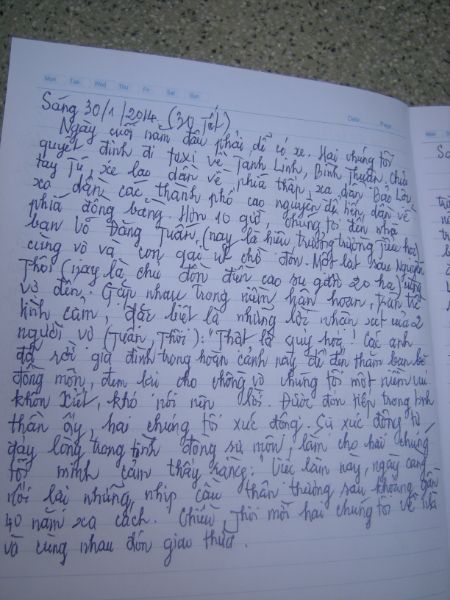 Mon Tue Wed Thu Fri Sat Sun
Sáng 30/1/2014 (30 Tết)
Ngày cuối năm đâu phải dễ có xe. Hai chúng tôi
quyết định đi taxi về Tánh Linh, Bình Thuận. Chia
tay Tú, xe lao dần về phía thấp, xa dần Bảo Lộc,
xa dần các thành phố cao nguyên để tiến dần về
phía đồng bằng. Hơn 10 giờ, chúng tôi đến nhà
bạn Võ Đăng Tuấn, (nay là hiệu trưởng trường tiểu học)
cùng vợ và con gái út chờ đón. Một lát sau Nguyễn
Thời (nay là chủ đồn điền cao su gần 20 ha) cùng
vợ đến. Gặp nhau trong niềm hân hoan, tràn trề
tình cảm, đặc biệt là những lời nhận xét của 2
người vợ (Tuấn, Thời): "Thật là quý hoá! Các anh
đã rời gia đình trong hoàn cảnh này để đến thăm bạn bè
đồng môn, đem lại cho chồng vợ chúng tôi một niềm vui
khôn xiết, khó nói nên lời. Được đón tiếp trong tình
thân ấy, hai chúng tôi xúc động. Cú xúc động từ
đáy lòng trong tình đồng sư môn, làm cho hai chúng
tôi mình cảm thấy rằng: Việc làm này, ngày càng
nối lại những nhịp cầu thân thương sau khoảng gần
40 năm xa cách. Chiều Thời mời hai chúng tôi về nhà
và cùng nhau đón giao thừa.